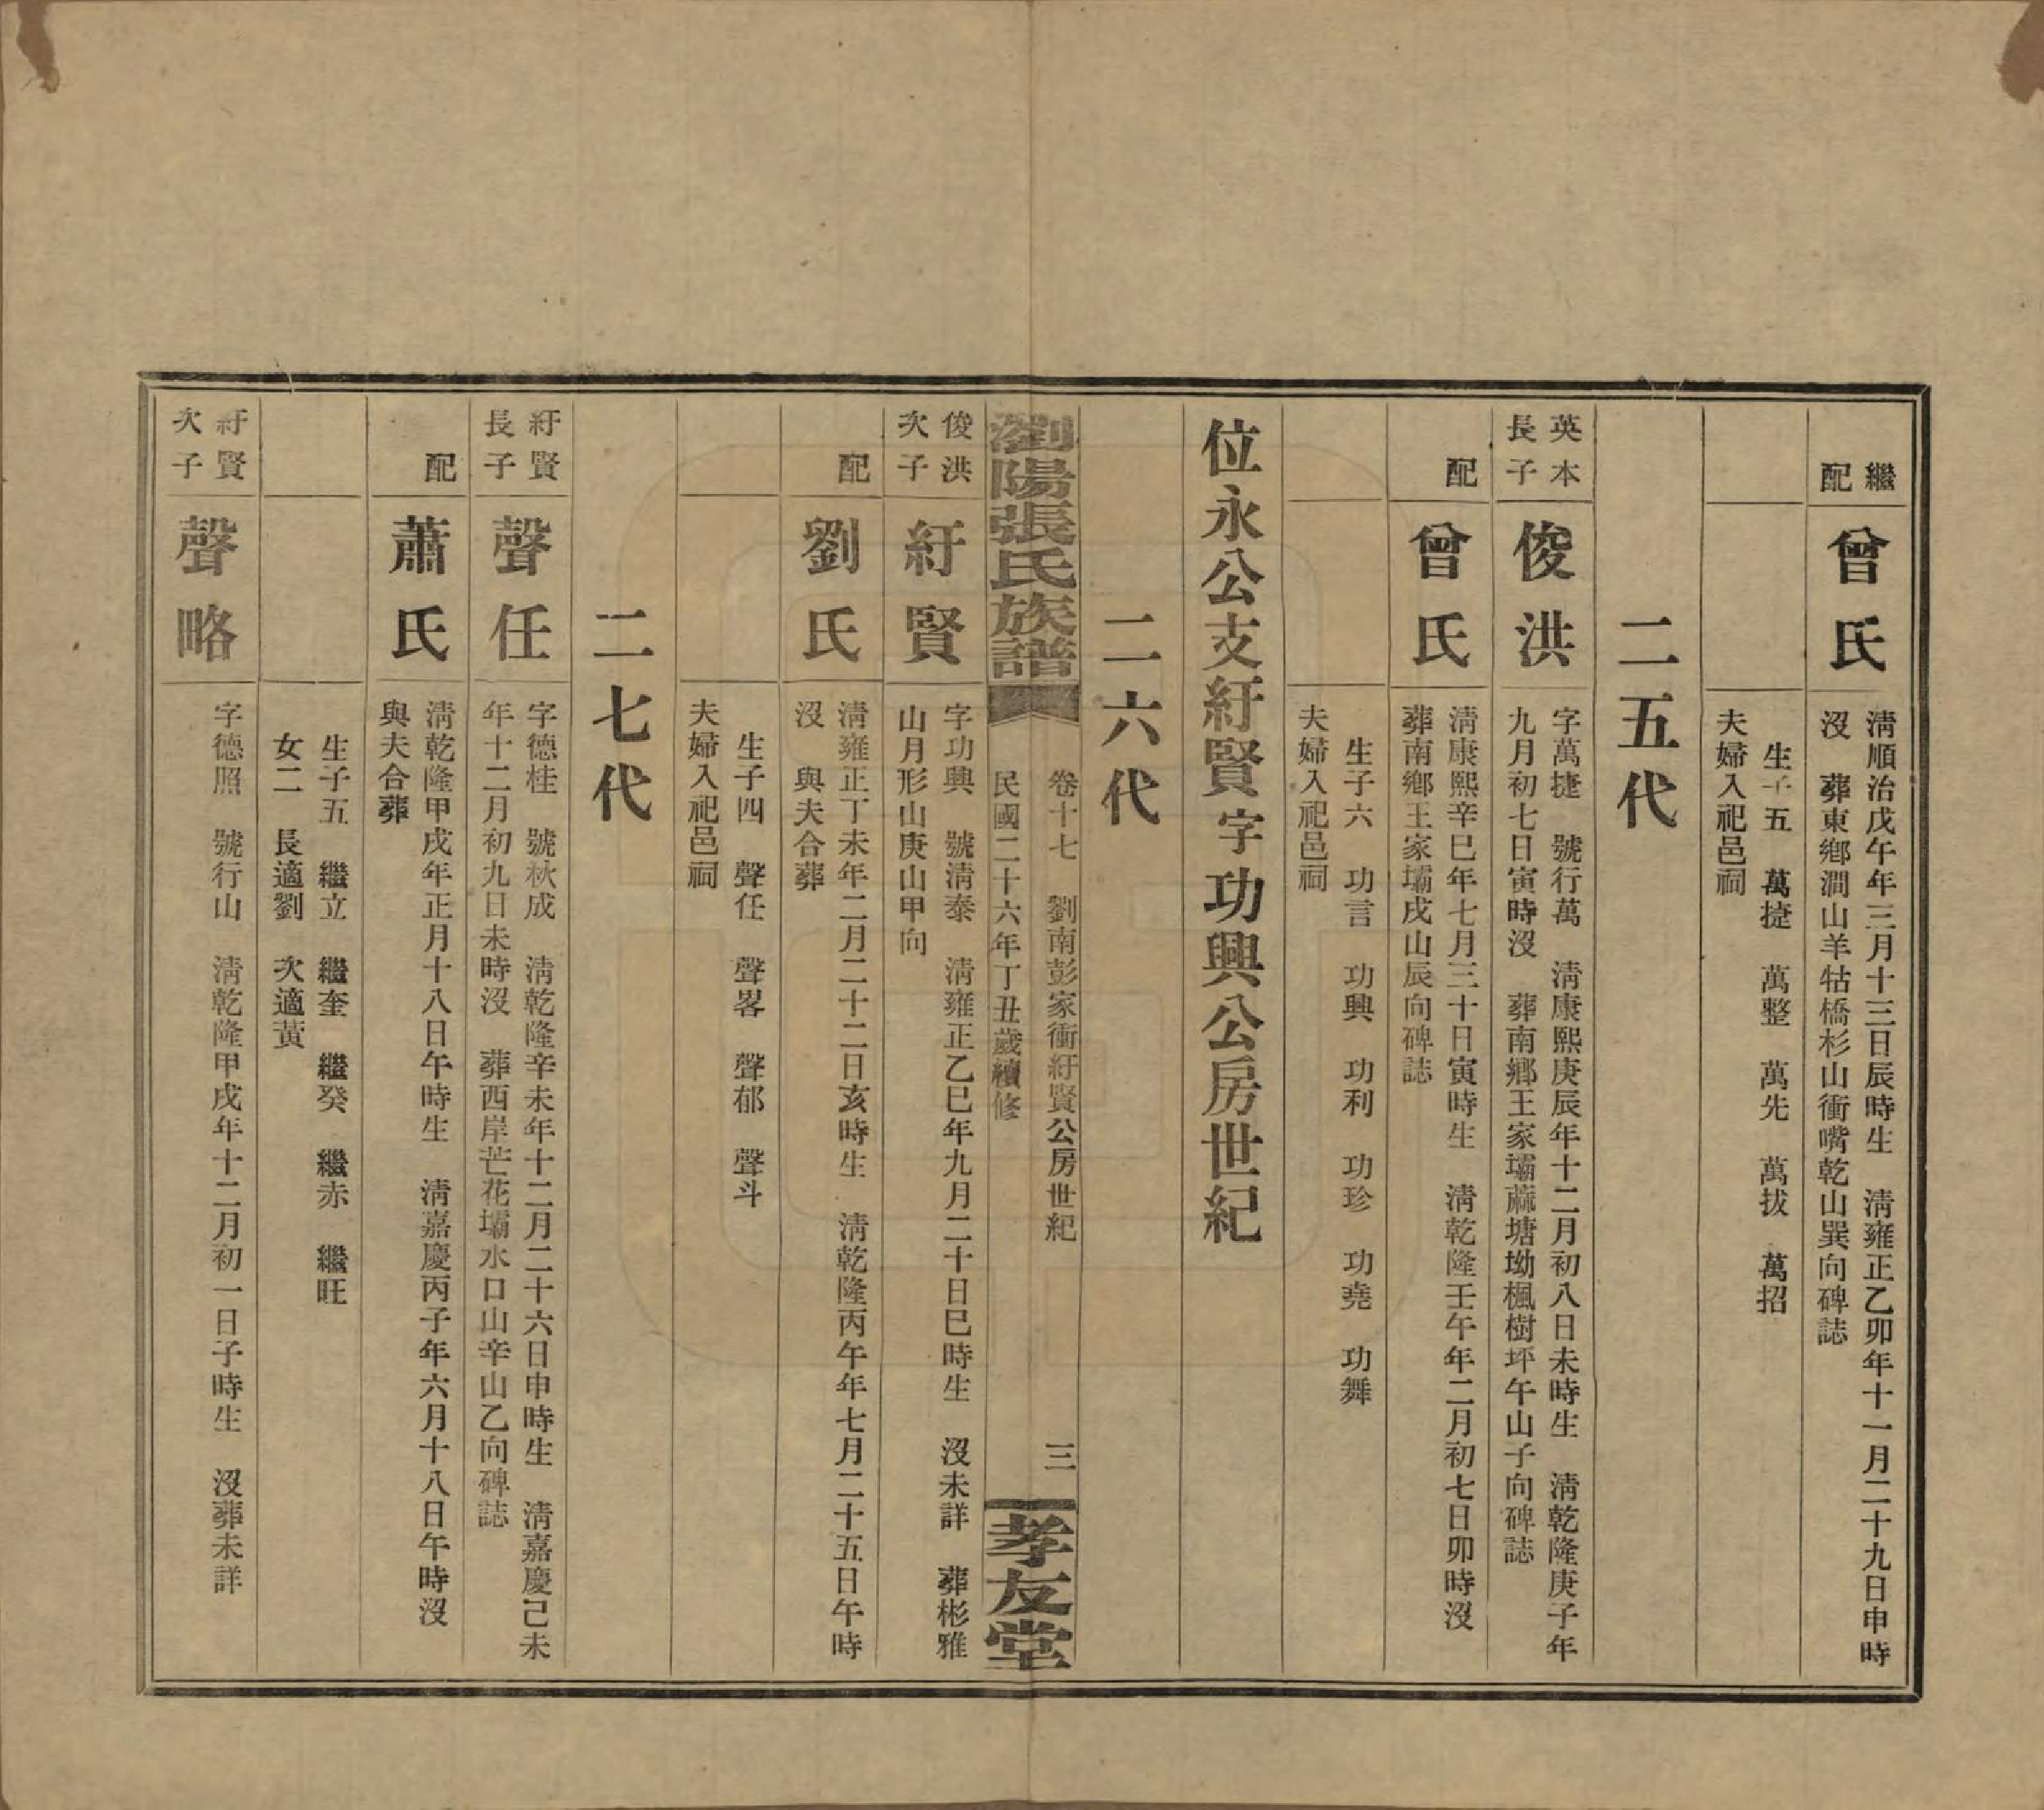 繼配
曾氏
清順治戊午年三月十三日辰時生　清雍正乙卯年十一月二十九日申時
沒　葬東鄉澗山羊牯橋杉山衝嘴乾山巽向碑誌
生子五　萬捷　萬整　萬先　萬拔　萬招
夫婦入祀邑祠
二五代
英本
長子
俊洪
字萬捷　號行萬　清康熙庚辰年十二月初八日未時生　清乾隆庚子年
九月初七日寅時沒　葬南鄉王家壩蔴塘坳楓樹坪午山子向碑誌
配
曾氏
清康熙辛巳年七月三十日寅時生　清乾隆壬午年二月初七日卯時沒
葬南鄉王家壩戌山辰向碑誌
生子六　功言　功興　功利　功珍　功堯　功舞
夫婦入祀邑祠
位永公支紆賢字功興公房世紀
二六代
瀏陽張氏族譜
卷十七　劉南彭家衝紆賢公房世紀　三
民國二十六年丁丑歲續修
孝友堂
俊洪
次子
紆賢
字功興　號清泰　清雍正乙巳年九月二十日巳時生　沒未詳　葬彬雅
山月形山庚山甲向
配
劉氏
清雍正丁未年二月二十二日亥時生　清乾隆丙午年七月二十五日午時
沒　與夫合葬
生子四　聲任　聲畧　聲郁　聲斗
夫婦入祀邑祠
二七代
紆賢
長子
聲任
字德桂　號秋成　清乾隆辛未年十二月二十六日申時生　清嘉慶己未
年十二月初九日未時沒　葬西岸芒花壩水口山辛山乙向碑誌
配
蕭氏
清乾隆甲戌年正月十八日午時生　清嘉慶丙子年六月十八日午時沒
與夫合葬
生子五　繼立　繼奎　繼癸　繼赤　繼旺
女二　長適劉　次適黃
紆賢
次子
聲略
字德照　號行山　清乾隆甲戌年十二月初一日子時生　沒葬未詳